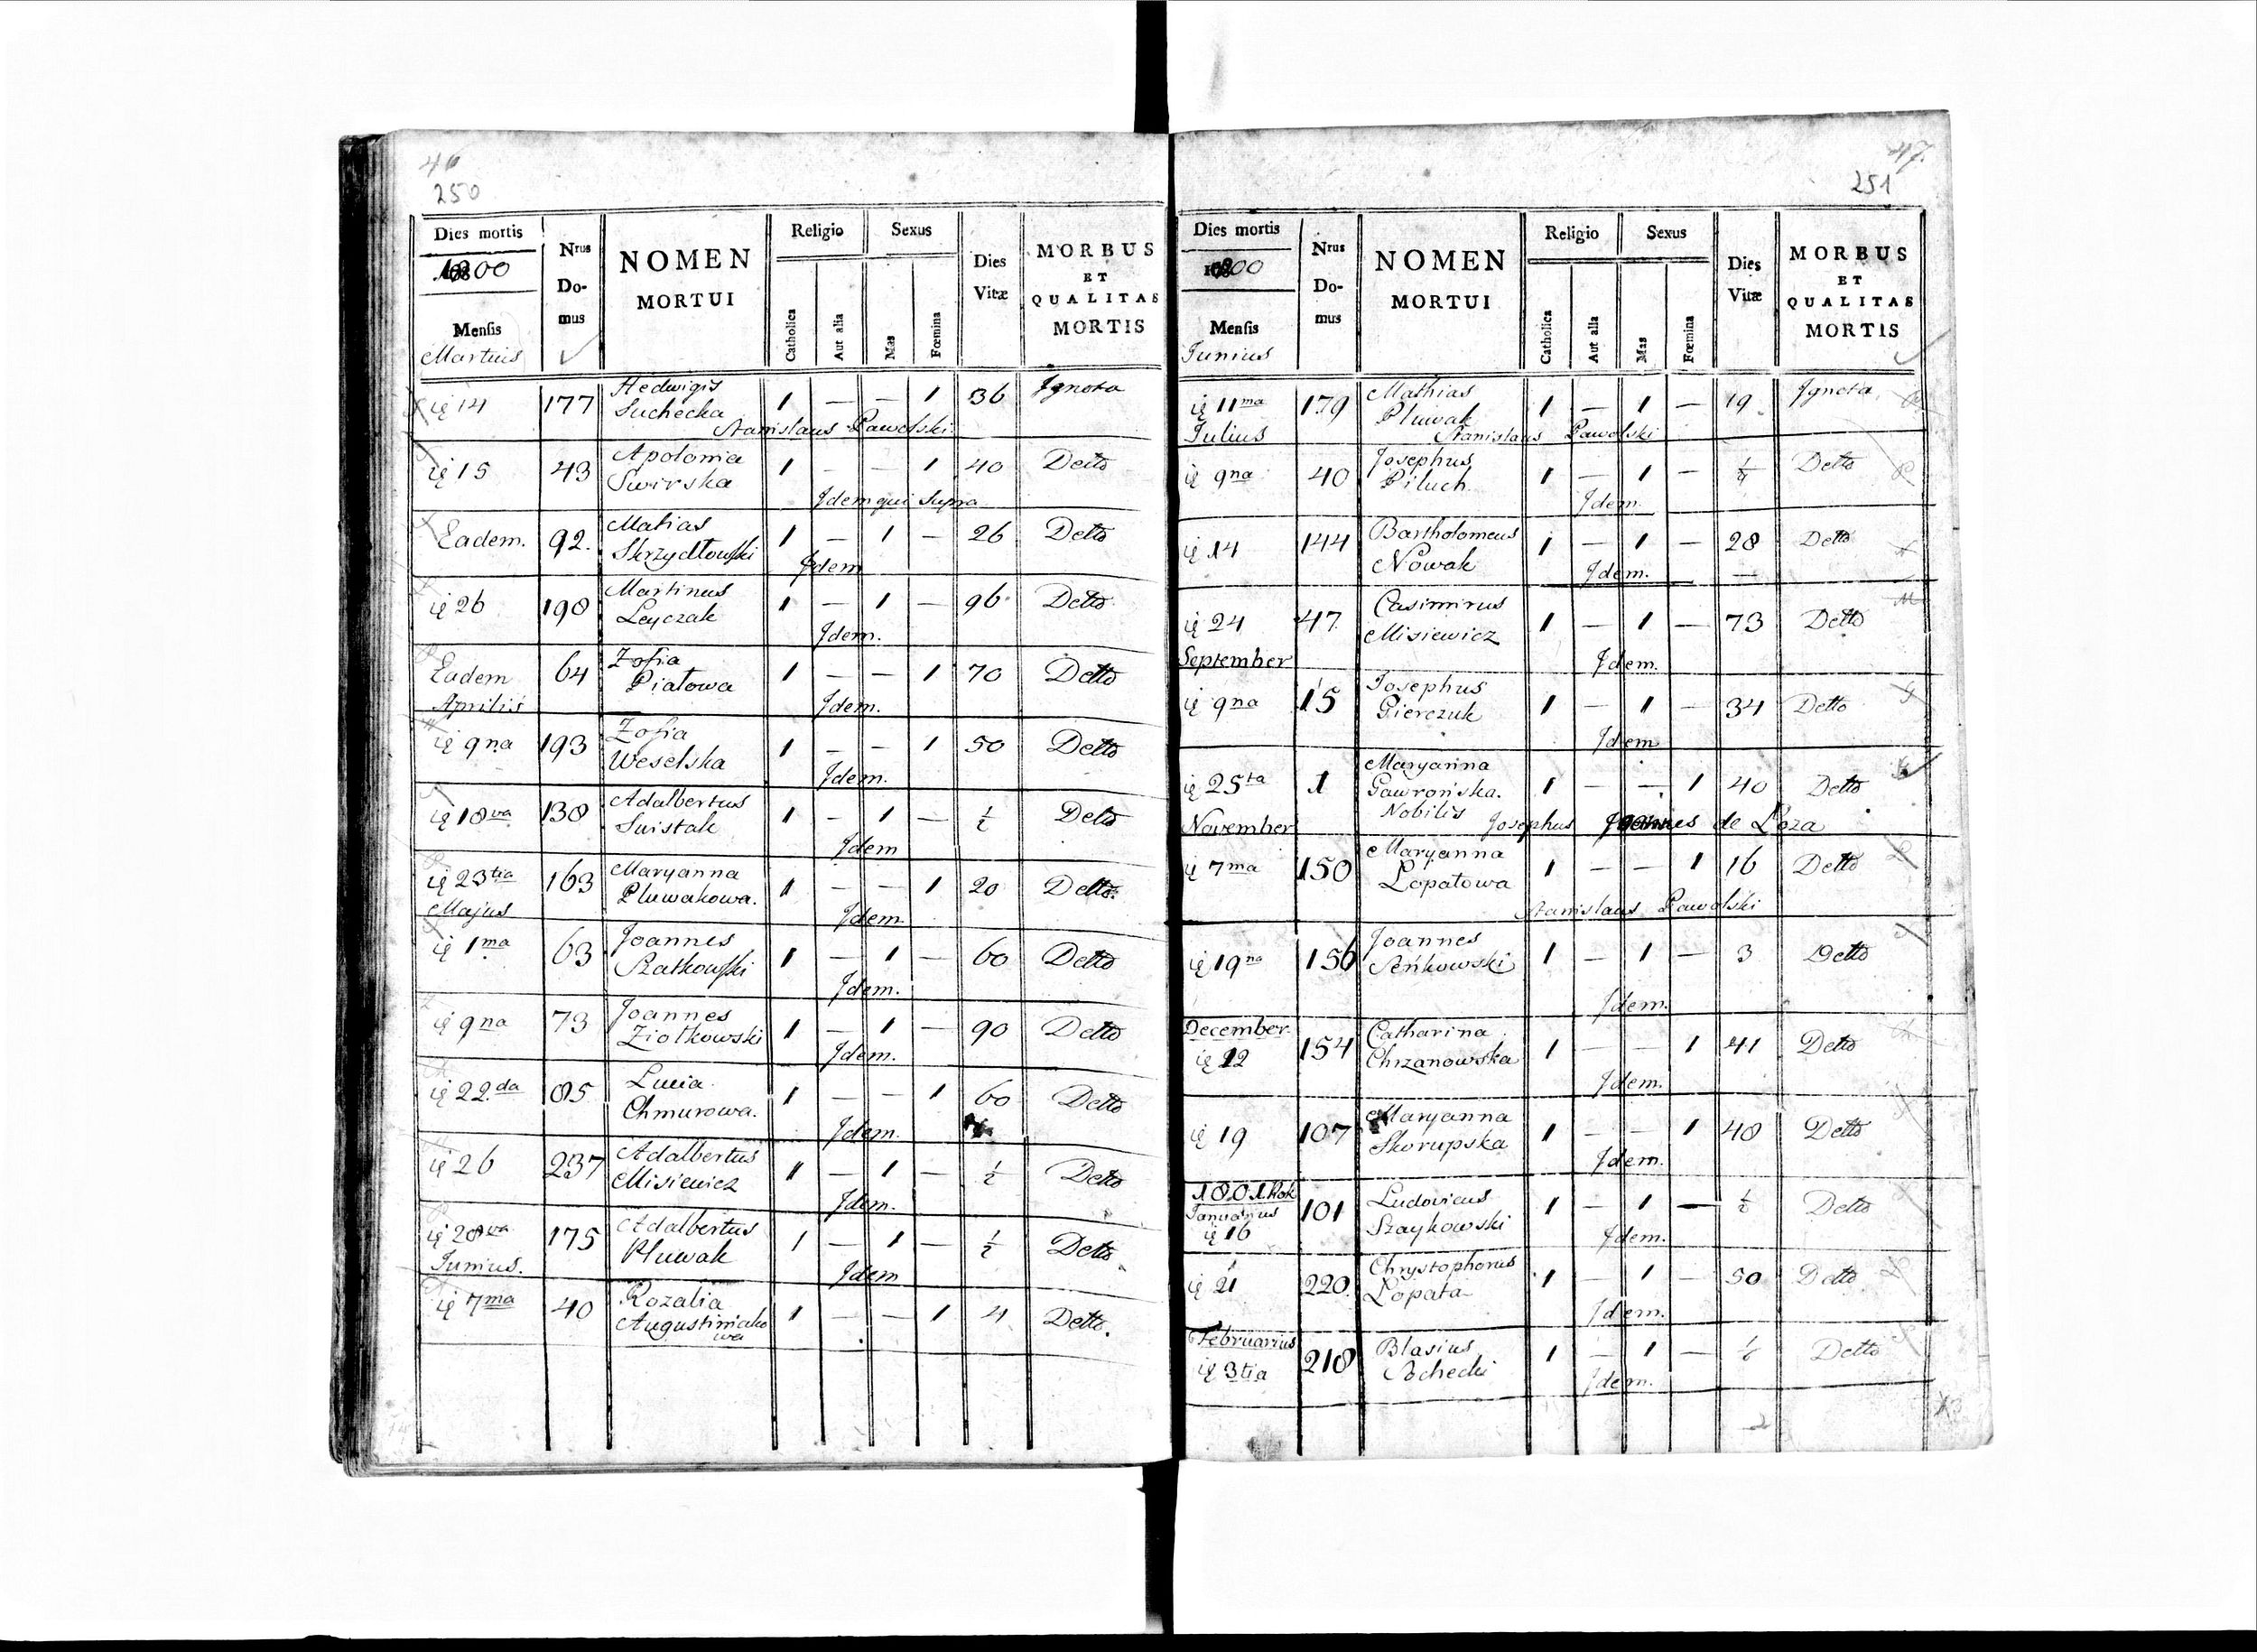 46
250
Dies mortis
1800
Mensis
Martius
Nrus
Do-
mus
NOMEN
MORTUI
Religio
Catholica
Aut alia
Sexus
Mas
Fœmina
Dies
Vitæ
MORBUS
ET
QUALITAS
MORTIS
ię 14 177 Hedwigis Suchecka 1 — — 1 36 Ignota
Stanislaus Pawolski
ię 15 43 Apolonia Swirska 1 — — 1 40 Detto
Idem qui Supra
Eadem. 92. Matias Skrzydłowski 1 — 1 — 26 Detto
Idem
ię 26 198 Martinus Leyczak 1 — 1 — 96 Detto
Idem.
Eadem 64 Zofia Piatowa 1 — — 1 70 Detto
Aprilis Idem.
ię 9na 193 Zofia Weselska 1 — — 1 50 Detto
Idem.
ię 18va 138 Adalbertus Swistak 1 — 1 — 1/2 Detto
Idem
ię 23tia 163 Maryanna Pluwakowa. 1 — — 1 20 Detto.
Majus Idem
ię 1ma 63 Joannes Szatkowski 1 — 1 — 60 Detto
Idem.
ię 9na 73 Joannes Ziołkowski 1 — 1 — 90 Detto
Idem.
ię 22da 85 Lucia Chmurowa. 1 — — 1 60 Detto
Idem.
ię 26 237 Adalbertus Misiewicz 1 — 1 — 1/2 Detto
Idem.
ię 28va 175 Adalbertus Pluwak 1 — 1 — 1/2 Detto
Iunius. Idem
ię 7ma 40 Rozalia Augustiniakowa 1 — — 1 4 Detto.
47.
251
Dies mortis
1800
Mensis
Iunius
Nrus
Do-
mus
NOMEN
MORTUI
Religio
Catholica
Aut alia
Sexus
Mas
Fœmina
Dies
Vitæ
MORBUS
ET
QUALITAS
MORTIS
ię 11ma 179 Mathias Pluwak 1 — 1 — 19 Ignota
Iulius Stanislaus Pawolski
ię 9na 40 Josephus Piluch 1 — 1 — 1/4 Detto
Idem.
ię 14 144 Bartholomeus Nowak 1 — 1 — 28 Detto
Idem.
ię 24 47 Casimirus Misiewicz 1 — 1 — 73 Detto
September Idem.
ię 9na 15 Iosephus Pierczuk 1 — 1 — 34 Detto
Idem
ię 25ta 1 Maryanna Gawrońska. Nobilis 1 — — 1 40 Detto
November Josephus de Łoza
ię 7ma 150 Maryanna Łopatowa 1 — — 1 16 Detto
Stanislaus Pawolski
ię 19na 156 Joannes Seńkowski 1 — 1 — 3 Detto
Idem.
December
ię 12 154 Catharina Chrzanowska 1 — — 1 41 Detto
Idem.
ię 19 107 Maryanna Skorupska 1 — — 1 48 Detto
Idem.
1801 Rok
Januarius
ię 16 101 Ludovicus Szaykowski 1 — 1 — 1/2 Detto
Idem.
ię 21 220. Chrystophorus Łopata 1 — 1 — 50 Detto
Idem.
Februarius
ię 3tia 218 Blasius Sochecki 1 — 1 — 1/6 Detto
Idem.